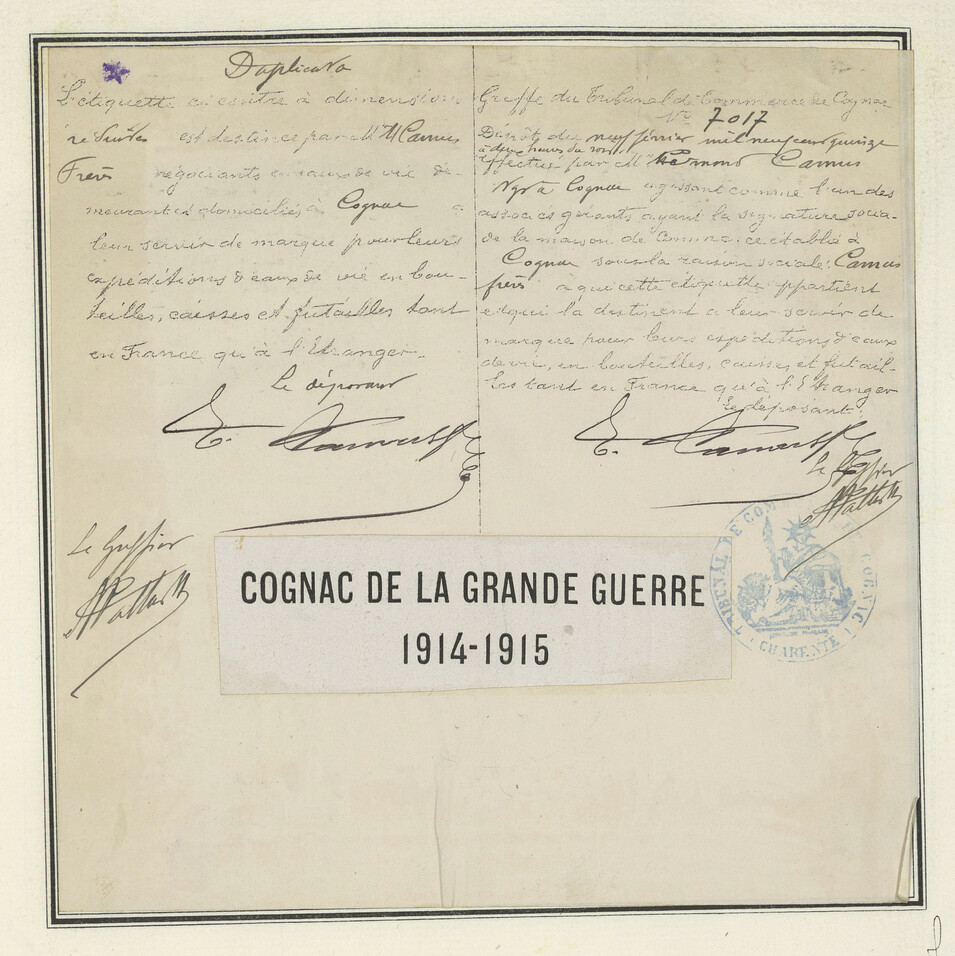 Duplicata
L'étiquette ci contre à dimensions
réduites est destinée par MM Camus
Frères négociants en eaux de vie de-
meurant et domiciliés à Cognac a
leur servir de marque pour leurs
expéditions d'eaux de vie en bou-
teilles, caisses et futailles tant
en France qu'à l'Etranger.
le déposant
E. Camus
Le Greffier
Greffe du Tribunal de Commerce de Cognac
No 7017
Dépôt du neuf février mil neuf cent quinze
à deux heures du soir
effectué par M Camus
Ngt a Cognac agissant comme l'un des
associés gérants ayant la signature socia-
de la maison de Commerce établie à
Cognac sous la raison sociale: Camus
frères à qui cette étiquette appartient
et qui la destinent a leur servir de
marque pour leurs expéditions d'eaux
de vie, en bouteilles, caisses et futail-
les tant en France qu'à l'Etranger
Le déposant:
E. Camus
Le Greffier
TRIBUNAL DE COMMERCE DE COGNAC
CHARENTE
COGNAC DE LA GRANDE GUERRE
1914-1915